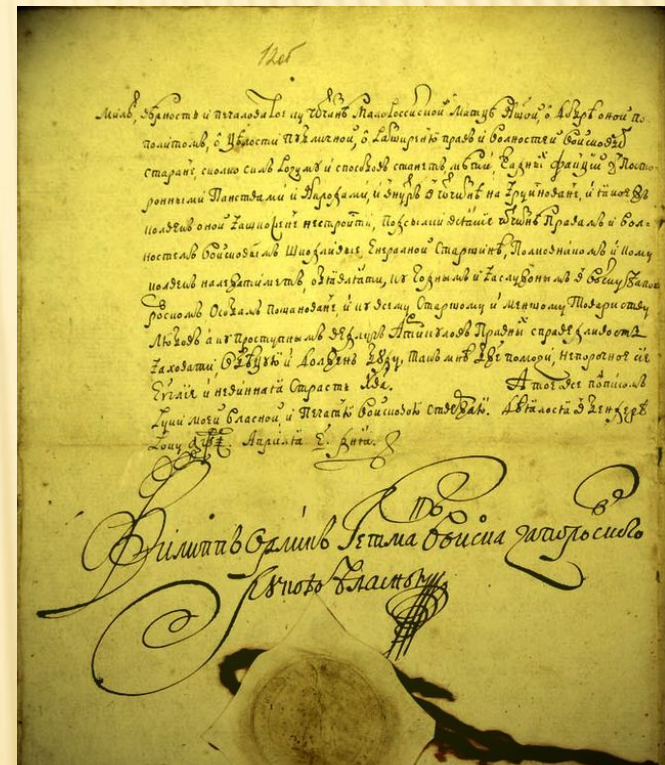 12об
милъ, вѣрность и печаловатог ку ѿчизнѣ Малороссийской Матцѣ нашой, ѡ добрѣ оной по
политомъ, ѡ цѣлости публичной, ѡ разширеню правъ и волностей войсковых
старанє, сколко силъ розуму и способовъ станетъ мѣти, жадных факций з посто
ронными панствами и народами, и внутръ в ѿчизнѣ на зруйнованє, и якоежъ
колвекъ оной зашкоженє нестроити, подсылки всякие ѿчизнѣ правамъ и вол
ностемъ войсковымъ шкодливые Енералной Старшинѣ, полковникомъ и кому
колвекъ належатиметъ, ѡбявляти, ку годнымъ и заслужонымъ в войску Запо
розкомъ особамъ пошанованє, и ку всему старшому и меншому товариству
любовъ а ку проступнымъ ведлугъ артикуловъ правных справедливость
заховати ѡбѣцую и долженъ буду, такъ мнѣ бже помози, непорочноє сие
Еуглие и невинная страсть Хва. А тоє все подписомъ
руки моей власной и печатю войсковою ствержаю. Дѣялося в Бендерѣ
року ҂аѱі Априля є҃ дня.
Филиппъ Орликъ Гетма войска запорозского
рукою власною